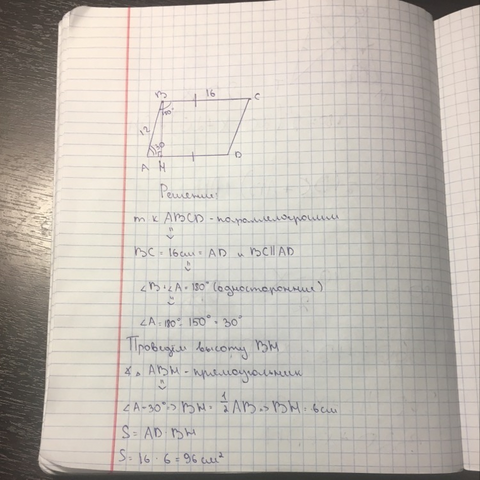 B 16 C
150°
12
30
A H D
Решение:
т к ABCD - параллелограмм
=>
BC = 16см = AD и BC||AD
=>
∠B + ∠A = 180° (односторонние)
=>
∠A = 180° - 150° = 30°
Проведём высоту BH
△ ABH - прямоугольник
=>
∠A = 30° => BH = 1/2 AB => BH = 6см
S = AD · BH
S = 16 · 6 = 96 см²